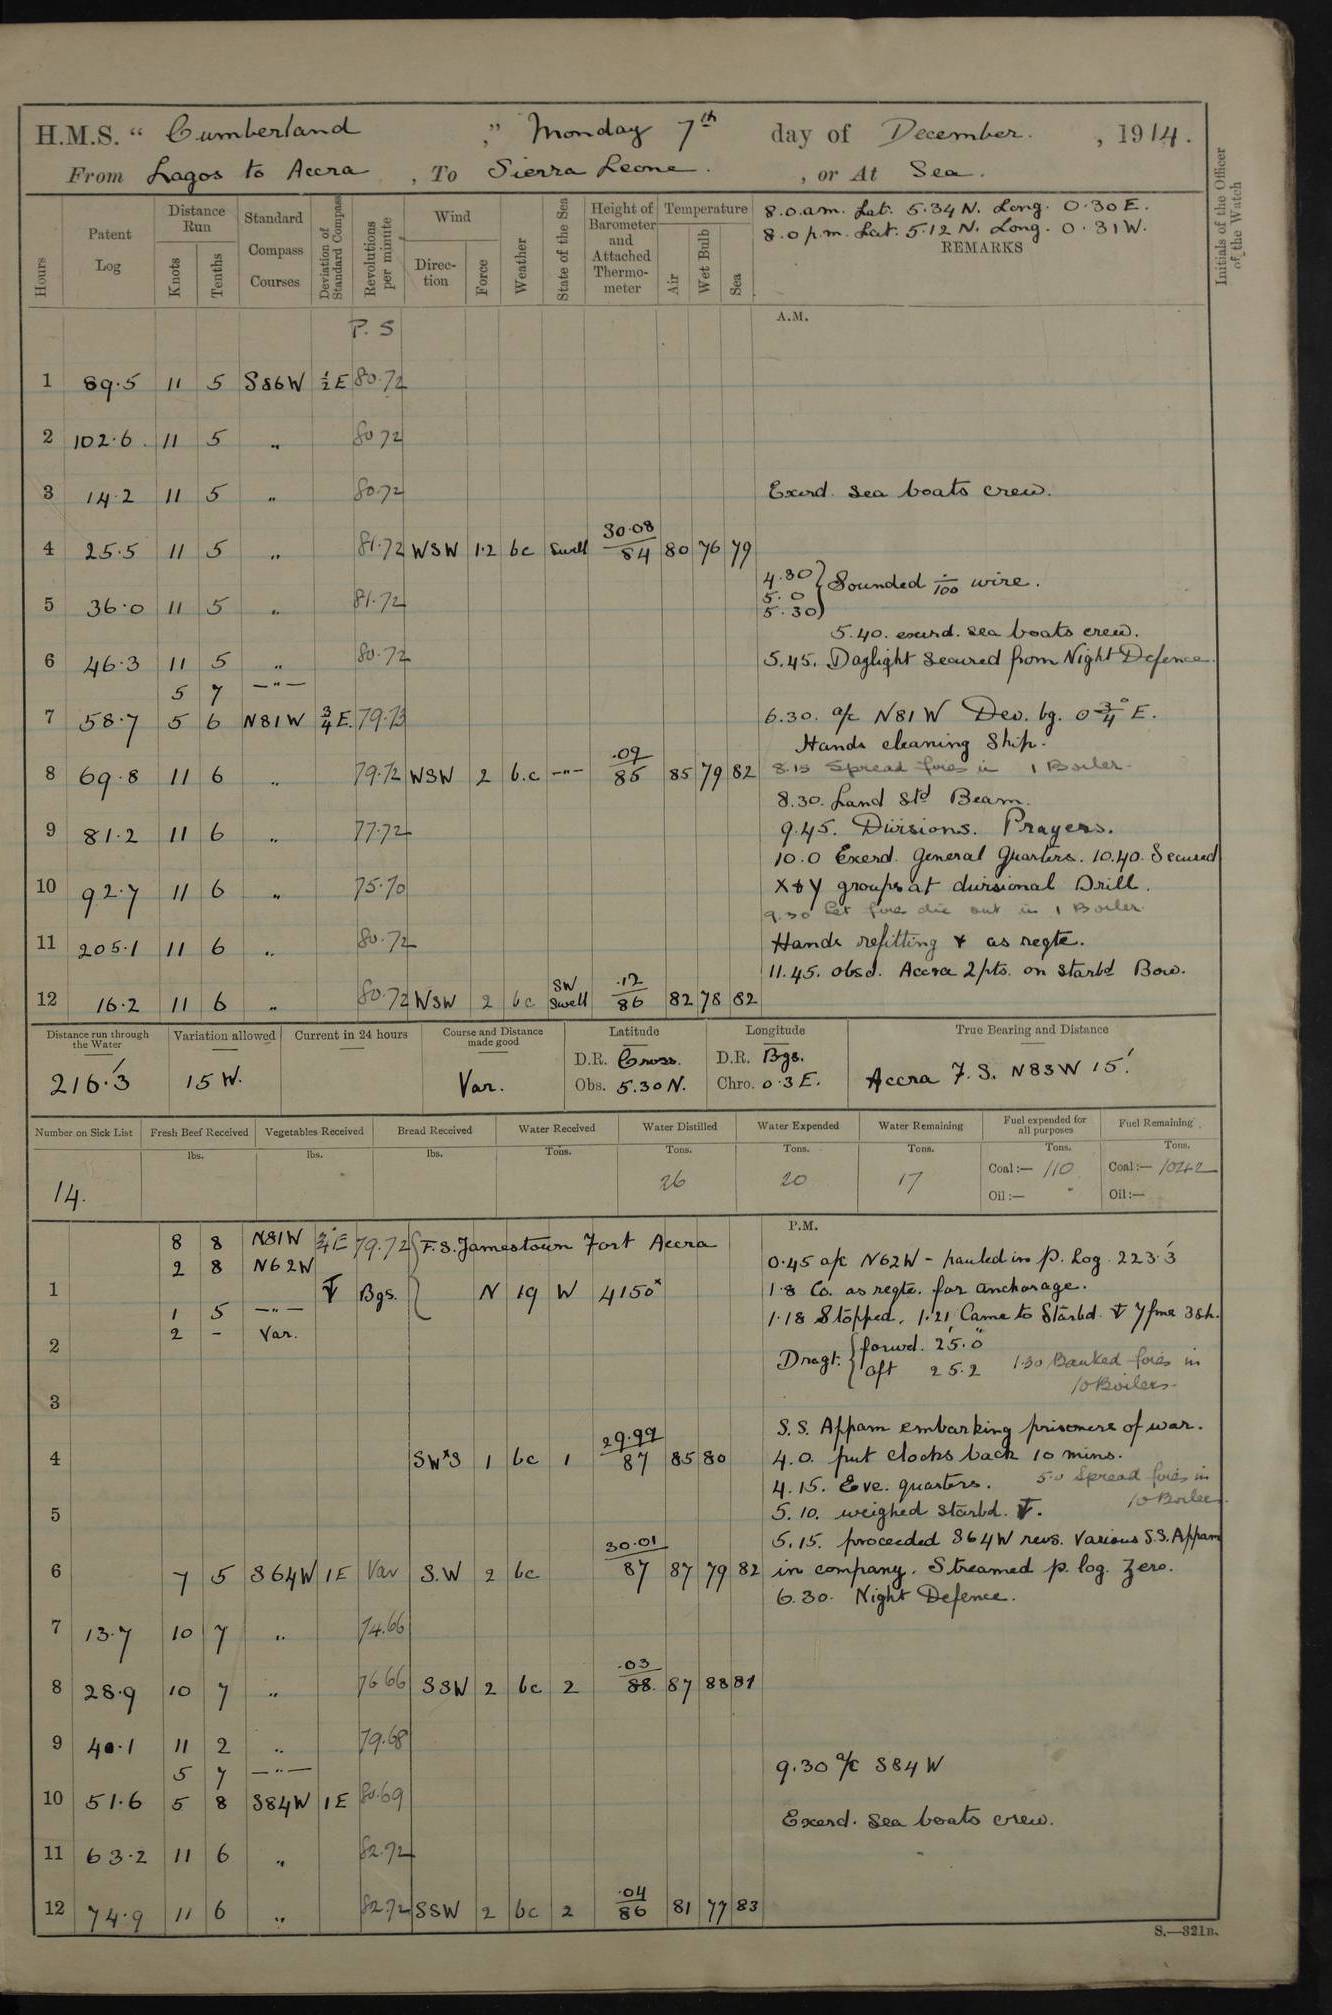 H.M.S. “ Cumberland ” Monday 7th day of December. , 1914.
From Lagos to Accra , To Sierra Leone. , or At Sea.
Initials of the Officer of the Watch
8.0.a.m. Lat. 5.34 N. Long. 0.30 E.
8.0 p.m. Lat. 5.12 N. Long. 0.31 W.
Hours Patent Log Distance Run Knots Tenths Standard Compass Courses Deviation of Standard Compass Revolutions per minute Wind Direction Force Weather State of the Sea Height of Barometer and Attached Thermometer Temperature Air Wet Bulb Sea REMARKS
P. S A.M.
1 89.5 11 5 S86W ½E 80.72
2 102.6 11 5 „ 80 72
3 14.2 11 5 „ 80.72 Exerd. sea boats crew.
4 25.5 11 5 „ 81.72 WSW 1.2 bc Swell 30.08/84 80 76 79
4.30 } Sounded ÷/100 wire.
5.0
5 36.0 11 5 „ 81.72 5.30
5.40. exerd. sea boats crew.
6 46.3 11 5 „ 80.72 5.45. Daylight Secured from Night Defence.
5 7 —"—
7 58.7 5 6 N81W ¾E. 79.73 6.30. a/c N81W Dev. bg. 0¾° E.
Hands cleaning Ship.
8 69.8 11 6 „ 79.72 WSW 2 b.c —"— .09/85 85 79 82 8.15 Spread fires in 1 Boiler.
8.30. Land Std Beam.
9 81.2 11 6 „ 77.72 9.45. Divisions. Prayers.
10.0 Exerd. General Quarters. 10.40. Secured
10 92.7 11 6 „ 75.70 X & Y groups at divisional Drill.
9.30 Let fires die out in 1 Boiler.
11 205.1 11 6 „ 80.72 Hands refitting & as reqte.
11.45. obsd. Accra 2 pts. on starbd Bow.
12 16.2 11 6 „ 80.72 WSW 2 bc SW Swell .12/86 82 78 82
Distance run through the Water Variation allowed Current in 24 hours Course and Distance made good Latitude Longitude True Bearing and Distance
D.R. Cross. D.R. Bgs.
216.′3 15 W. Var. Obs. 5.30 N. Chro. 0.3 E. Accra F. S. N83W 15′.
Number on Sick List Fresh Beef Received Vegetables Received Bread Received Water Received Water Distilled Water Expended Water Remaining Fuel expended for all purposes Fuel Remaining
lbs. lbs. lbs. Tons. Tons. Tons. Tons. Tons. Tons.
14. 26 20 17 Coal:— 110 Coal:— 1042
Oil:— Oil:—
P.M.
8 8 N81W ¾°E 79.72 { F.S. Jamestown Fort Accra
2 8 N62W 0.45 a/c N62W - hauled in P. Log 223.′3
1 Bgs. N 19 W 4150x 1.8 Co. as reqte. for anchorage.
1 5 —"— 1.18 Stopped, 1.21 Came to Starbd. 7 fms 3 sh.
2 – Var.
2 Dragt. { forwd. 25′.0″
aft 25.2 1.30 Banked fires in
10 Boilers.
3
S.S. Appam embarking prisoners of war.
4 SWxS 1 bc 1 29.99/87 85 80 4.0. put clocks back 10 mins.
4.15. Eve. quarters. 5.0 Spread fires in
10 Boilers.
5 5.10. weighed starbd.
5.15. proceeded S64W revs. Various S.S. Appam
6 7 5 S64W 1E Var S.W 2 bc 30.01/87 87 79 82 in company. Streamed p. log. Zero.
6.30. Night Defence.
7 13.7 10 7 „ 74.66
8 28.9 10 7 „ 76 66 SSW 2 bc 2 .03/88. 87 88 81
9 40.1 11 2 „ 79.68
5 7 —"— 9.30 a/c S84W
10 51.6 5 8 S84W 1E 80.69
Exerd. sea boats crew.
11 63.2 11 6 „ 82.72
12 74.9 11 6 „ 82.72 SSW 2 bc 2 .04/86 81 77 83
S.—321B.